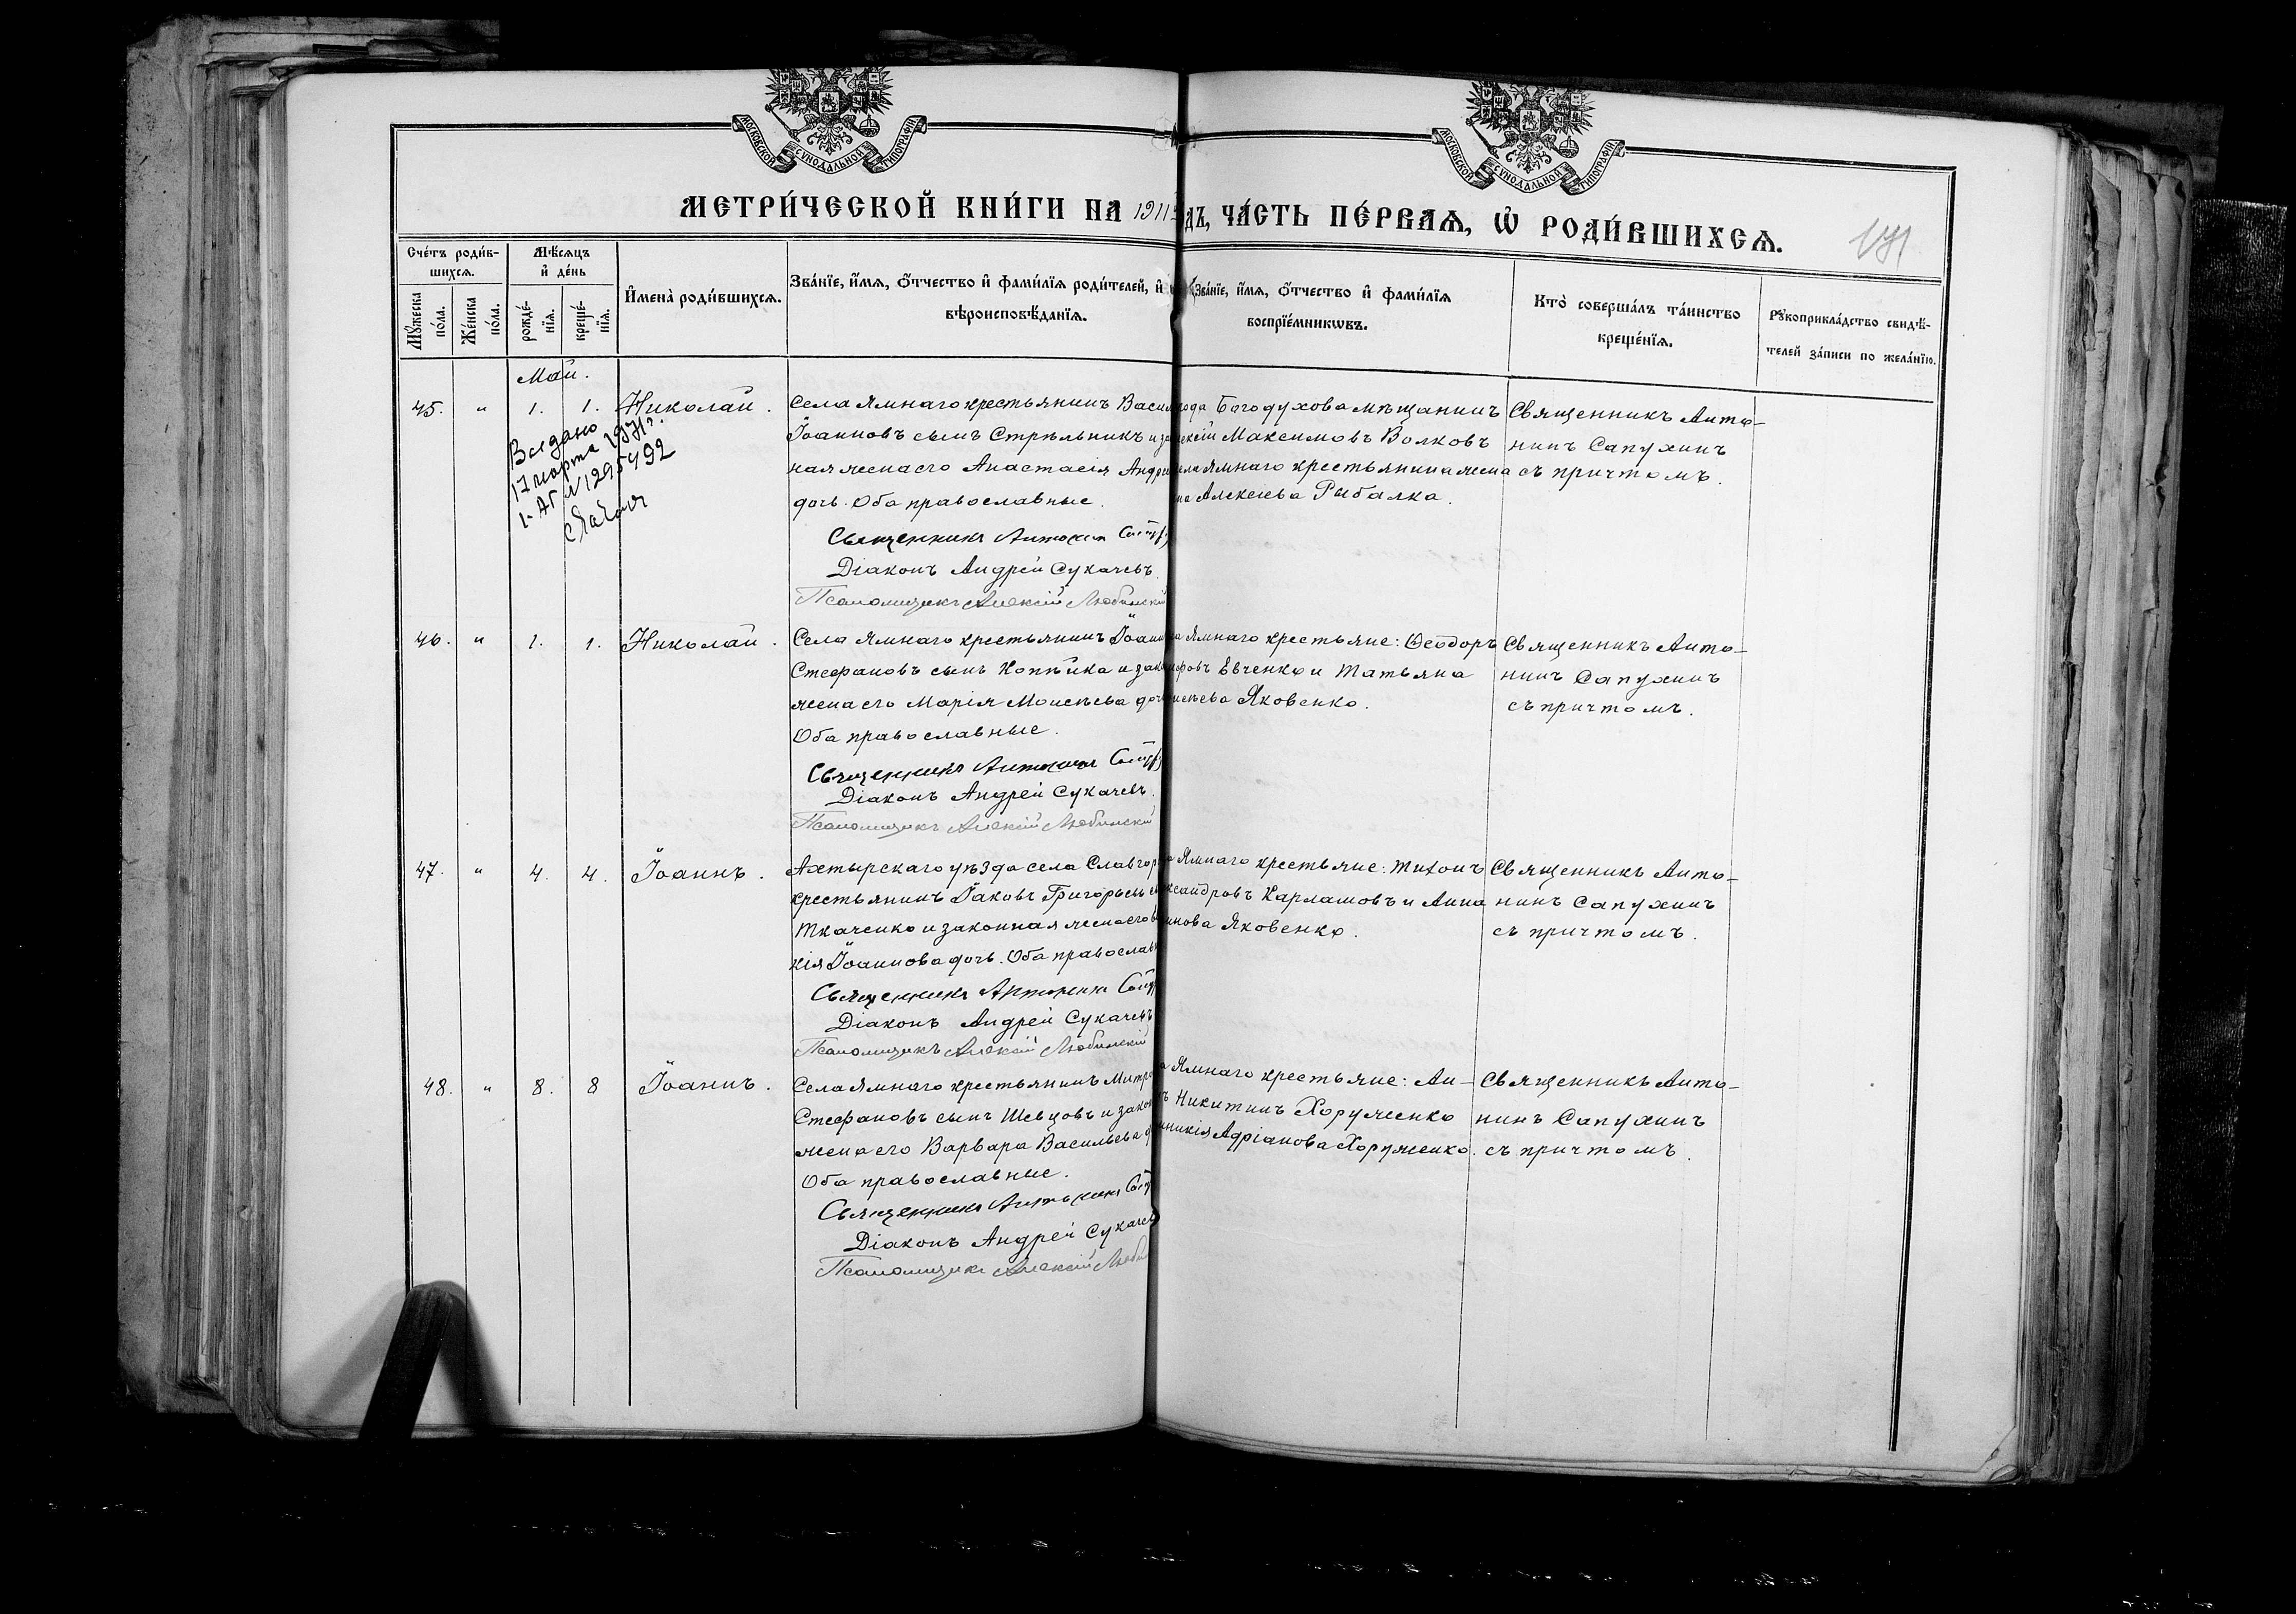 МОСКОВСКОЙ СѴНОДАЛЬНОЙ ТИПОГРАФІИ
МОСКОВСКОЙ СѴНОДАЛЬНОЙ ТИПОГРАФІИ
МЕТРИ́ЧЕСКОЙ КНИ́ГИ НА 1911
дъ, ЧА́СТЬ ПЕ́РВАЯ, Ѡ РОДИ́ВШИХСЯ.
Сче́тъ роди́в-
шихся.
Мꙋ́жеска по́ла.
Же́нска по́ла.
Мѣ́сяцъ
и де́нь
рожде́-
нїя.
креще́-
нїя.
Имена̀ роди́вшихся.
Зва́нїе, и́мя, ѻ́тчество и фами́лїя роди́телей, и
вѣроисповѣ́данїя.
Зва́нїе, и́мя, ѻ́тчество и фами́лїя
воспрїе́мникѡвъ.
Кто̀ соверша́лъ та́инство
креще́нїя.
Рꙋкоприкла́дство свидѣ́-
телей за́писи по жела́нїю.
Май.
45. " 1. 1. Николай.
Села Ямнаго крестьянинъ Васил
Іоанновъ сынъ Стрѣльникъ и за
ная жена его Анастасія Андре
дочь. Оба православные.
Священникъ Антонин
Діаконъ Андрей Сукачевъ
Псаломщикъ Алексій Любинскій
рода Богодухова мѣщанинъ
ексій Максимовъ Волковъ
ела Ямнаго крестьянина жена
на Алексѣева Рыбалка.
Священникъ Анто-
нинъ Сапухинъ
съ причтомъ.
Выдано
17 марта 1971 г.
46. " 1. 1. Николай.
Села Ямнаго крестьянинъ Іоанн
Стефановъ сынъ Копѣйка и зак
жена его Марія Моисѣева доч
Оба православные.
Священникъ Антонин
Діаконъ Андрей Сукачевъ.
Псаломщикъ Алексій Любинскій
а Ямнаго крестьяне: Ѳеодоръ
ровъ Евченко и Татьяна
исѣева Яковенко.
Священникъ Анто-
нинъ Сапухинъ
съ причтомъ.
47. " 4. 4. Іоаннъ.
Ахтырскаго уѣзда села Славгор
крестьянинъ Іаковъ Григорьевъ с
Ткаченко и законная жена его
кія Іоаннова дочь. Оба православ
Священникъ Антонин
Діаконъ Андрей Сукачевъ
Псаломщикъ Алексій Любинскій
а Ямнаго крестьяне: Тихонъ
ксандровъ Карлашовъ и Анна
нова Яковенко.
Священникъ Анто-
нинъ Сапухинъ
съ причтомъ.
48. " 8. 8 Іоаннъ.
Села Ямнаго крестьянинъ Митр
Стефановъ сынъ Шевцовъ и закон
жена его Варвара Васильева д
Оба православные.
Священникъ Антонин
Діаконъ Андрей Сукачев
Псаломщикъ Алексій Люби
а Ямнаго крестьяне: Ан-
ъ Никитинъ Хоруженко
никія Адріанова Хоруженко.
Священникъ Анто-
нинъ Сапухинъ
съ причтомъ.